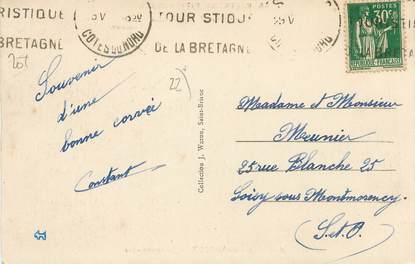 RISTIQUE
BRETAGNE
COTES DU NORD
TOUR STIQUE
DE LA BRETAGNE
POSTES
30c
REPUBLIQUE FRANCAISE
201
22)
Souvenir
d'une
bonne corvée
Constant
Collection J. Waron, Saint-Brieuc
Madame et Monsieur
Meunier
25 rue Blanche 25
Soisy sous Montmorency
(S. et O.)